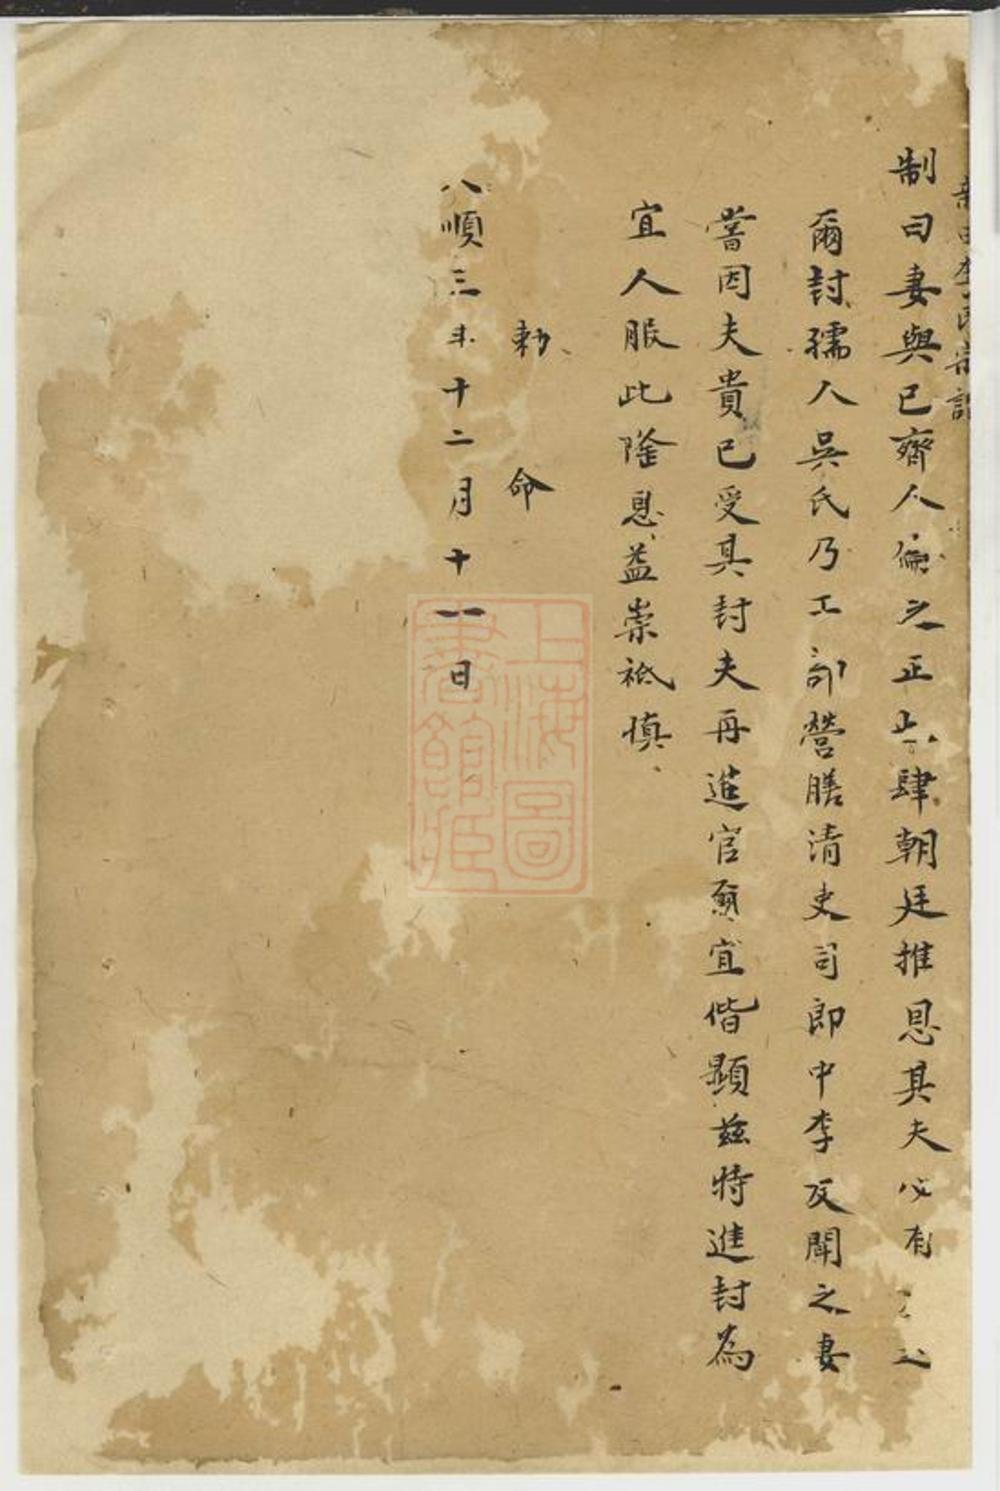 制曰妻與已齊人倫之正肆朝廷推恩其夫必有
爾封孺人吳氏乃工部營膳清吏司郎中李友聞之妻
蓍因夫貴已受其封夫再進官爾宜偕顯茲特進封為
宜人服此隆恩益崇祗慎
勅命
順三年十二月十一日
上海圖
書館藏